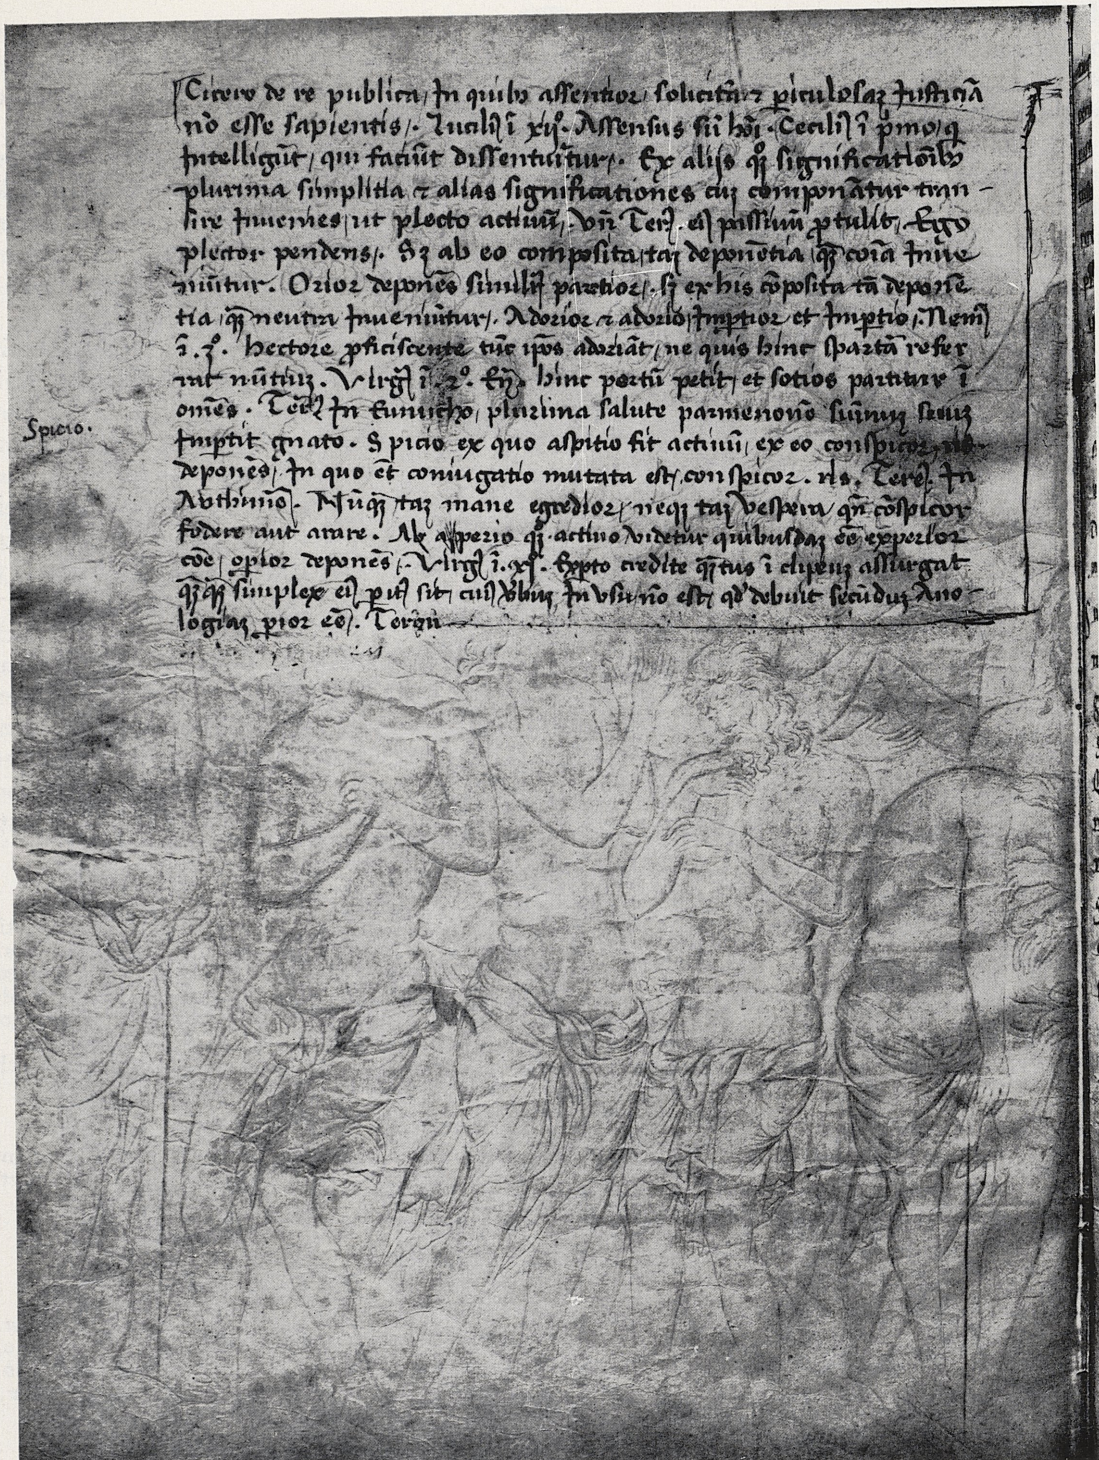 Cicero de re publica, In quibꝫ assentior, solicitā ⁊ ꝑiculosaꝫ Iusticiā
nō esse sapientis,. Lucilꝰ ī xijº. Assensus sū hōī. Cecilꝰ ī pͥmo, q
Intelligūt, qui faciūt dissentuītur,. Ex alijs qͦꝫ significatiōībꝫ
plurima simplitia ⁊ alias significationes cuꝫ componātur tran-
sire Invenies, ut plecto activū,. Vn̄ Terꝰ. eiꝰ passivū ꝓtulit, Ego
plector pendens,. Sꝫ ab eo composita, taꝫ deponētia qꝫ̄ coīa Inve
niūtur. Orior deponēs similiꝉ partior,. sꝫ ex his cōposita tā deponē
tia, qꝫ̄ neutra Inveniūtur,. Adorior ⁊ adorio, Imꝑtior et Imꝑtio,. Nemꝰ
ī .3º. Hectore ꝓficiscente tūc ip̄os adoriāt, ne quis hinc spartā refer
rat nūtiuꝫ. Virgꝰ ī. 2º. En̄. hinc portū petit, et sotios partitur ī
omēs. Terꝰ In Eunucho, plurima salute parmenonō sūmuꝫ suuꝫ
Imꝑtit gnato. Spicio ex quo aspitio fit activū, ex eo conspicor,
Spicio.
deponēs, In quo et̄ coniugatio mutata est, conspicor. ris. Tereꝰ. In
Authinnō. Nūqꝫ̄ taꝫ mane egredior, neqꝫ taꝫ vespera, qn̄ cōspicor
fodere aut arare. Ab asperio qͦꝫ activo videtur quibusdaꝫ eē experior
cōe, oꝑior deponēs,. Virgꝰ ī. xjº. Exꝑto credite qꝫ̄tus ī clipeuꝫ assurgat
qꝫ̄qꝫ̄ simplex eiꝰ ꝑiꝰ sit, cuiꝰ v̄buꝫ In usu nō est, qd̓ debuit secūduꝫ Ano-
logiaꝫ ꝑior eē,. Tergū